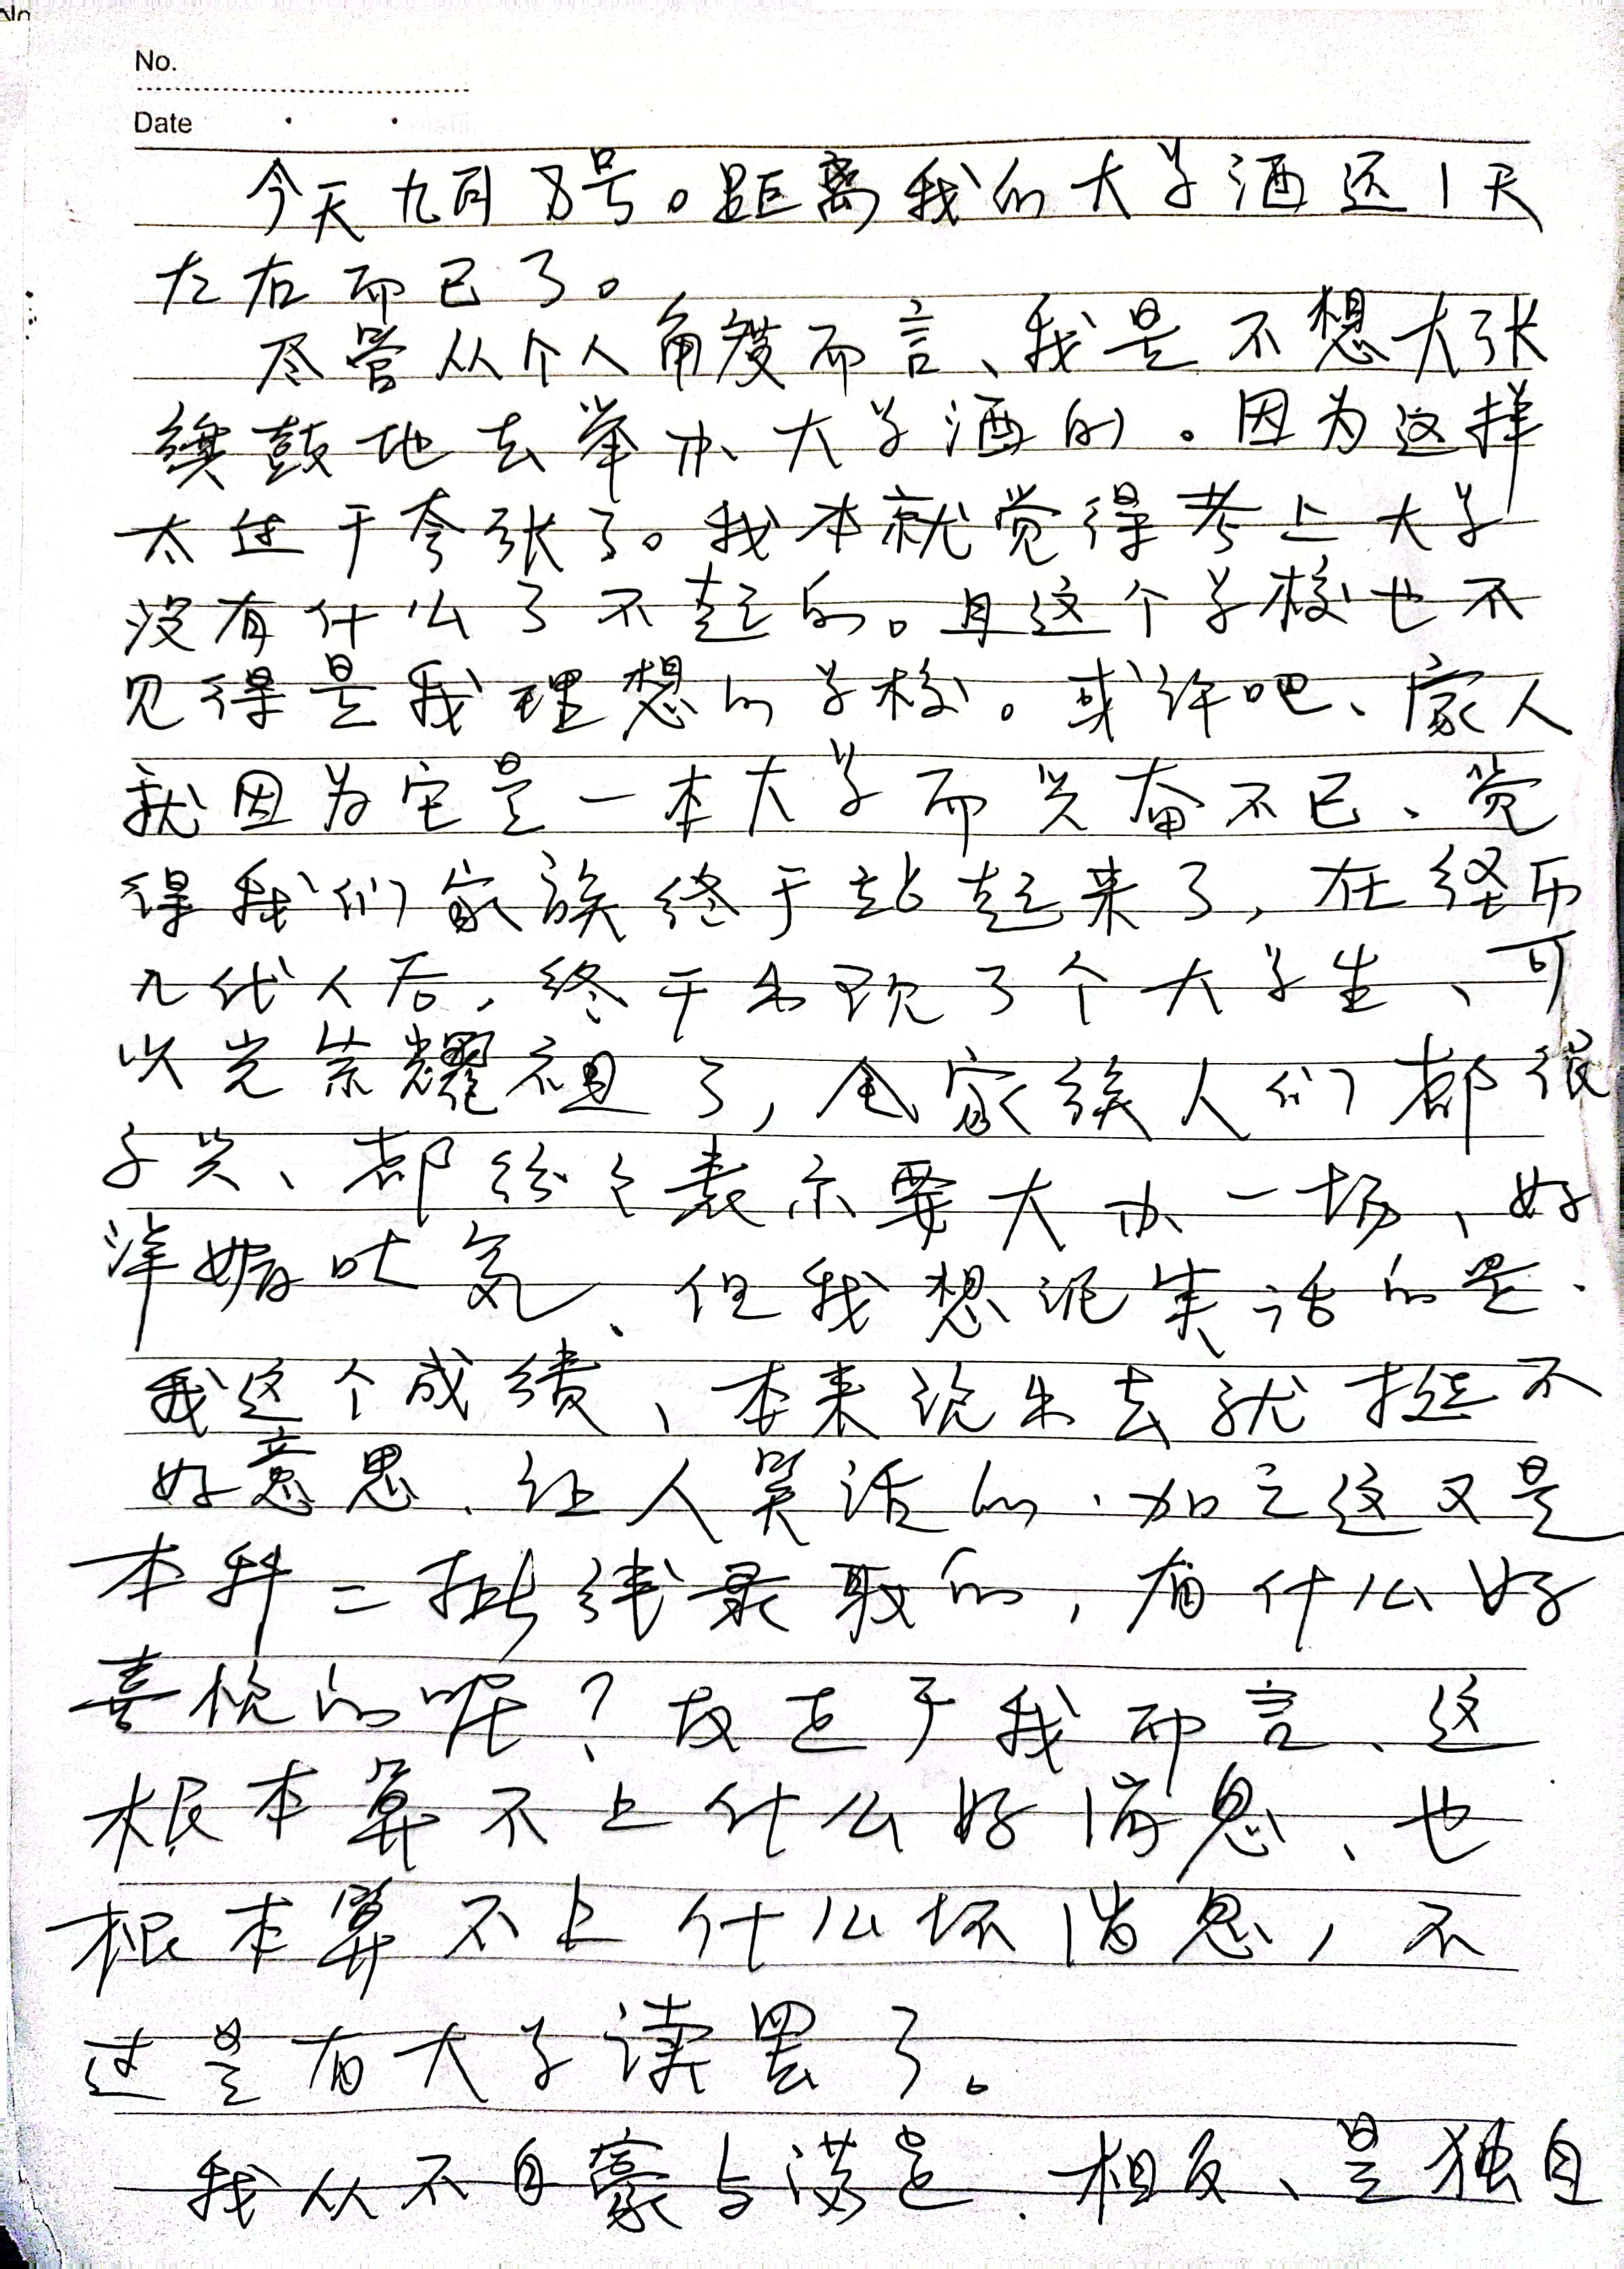 No.
Date
今天九月8号。距离我的大学酒还1天
左右而已了。
尽管从个人角度而言、我是不想大张
旗鼓地去举办大学酒的。因为这样
太过于夸张了。我本就觉得考上大学
没有什么了不起的。且这个学校也不
见得是我理想的学校。或许吧、家人
就因为它是一本大学而兴奋不已、觉
得我们家族终于站起来了,在经历
几代人后,终于出现了个大学生、可
以光宗耀祖了,全家族人们都很
高兴、都纷纷表示要大办一场、好
洋媚吐气、但我想说实话的是、
我这个成绩、本来说出去就挺不
好意思、让人笑话的、加之这又是
本科二批线录取的,有什么好
喜悦的呢?故于我而言、这
根本算不上什么好消息、也
根本算不上什么坏消息,不
过是有大学读罢了。
我从不自豪与满足、相反、是独自